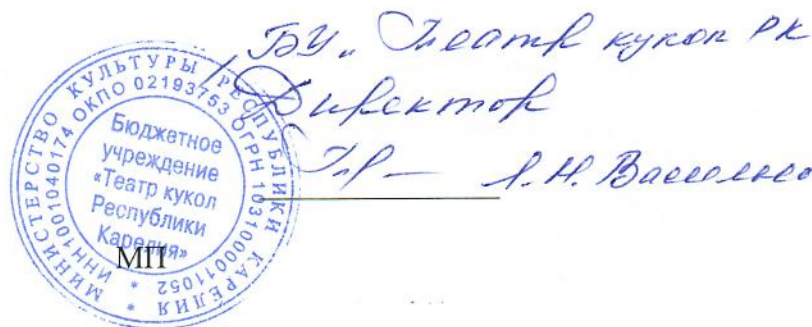 БУ „Театр кукол РК
Директор
Л.Н. Васильев
МИНИСТЕРСТВО КУЛЬТУРЫ РЕСПУБЛИКИ КАРЕЛИЯ *
ИНН 1001040174 ОКПО 02193753 ОГРН 1031000011052 *
Бюджетное
учреждение
«Театр кукол
Республики
Карелия»
МП